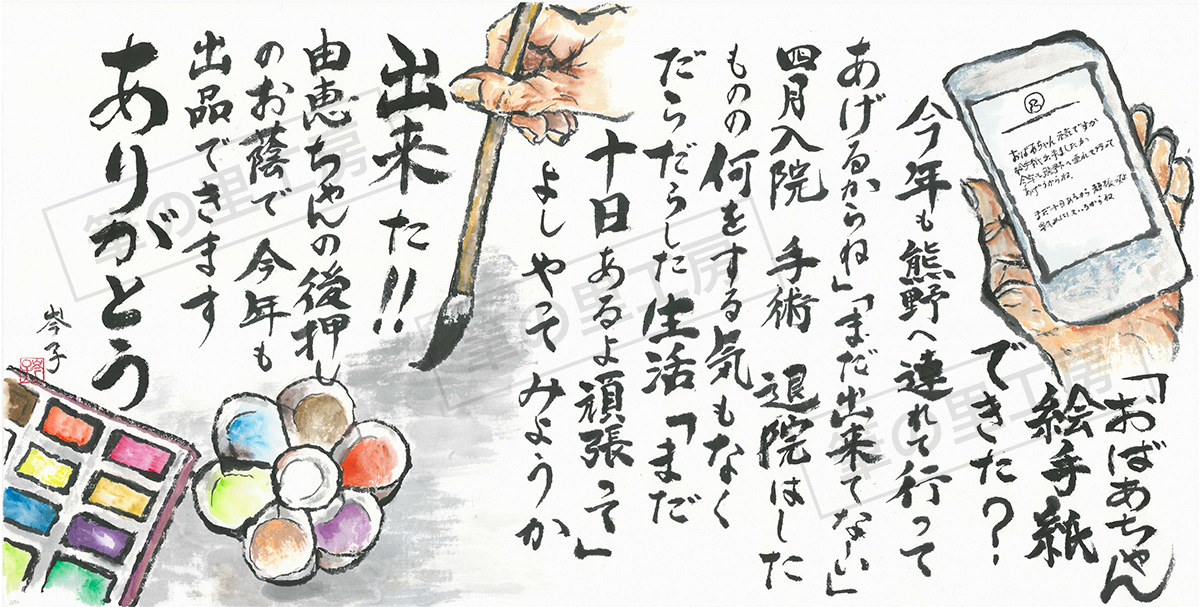 「おばあちゃん
絵手紙
できた?
今年も熊野へ連れて行って
あげるからね」「まだ出来てない」
四月入院 手術 退院はした
ものの何をする気もなく
だらだらした生活「まだ
十日あるよ頑張って」
よしやってみようか
出来た!!
由恵ちゃんの後押し
のお蔭で今年も
出品できます
ありがとう
岑子
おばあちゃん元気ですか
絵手紙出来ましたか
今年も熊野へ連れて行って
あげるからね
まだ十日あるから頑張ってよ
筆の里工房
筆の里工房
筆の里工房
筆の里工房